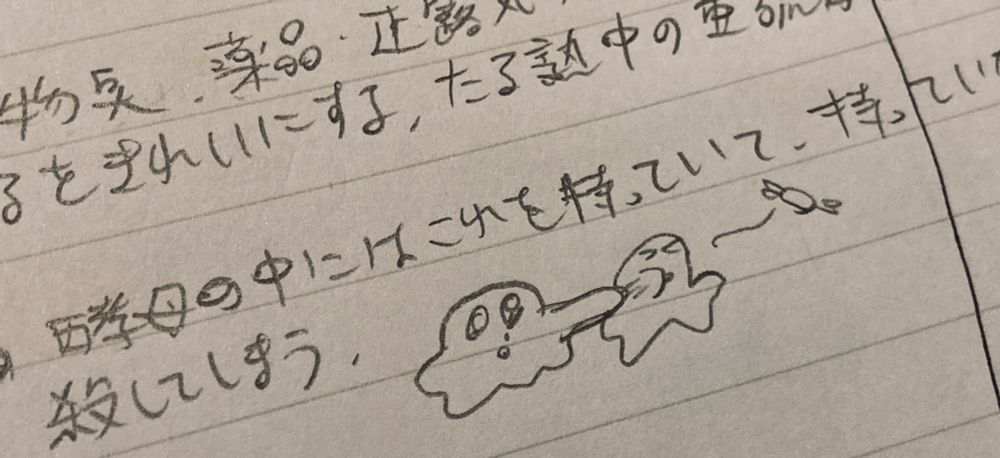 物質、薬品・正露丸
るをきれいにする、たる熟中の亜硫
酵母の中にはこれを持っていて、持ってい
殺してしまう。